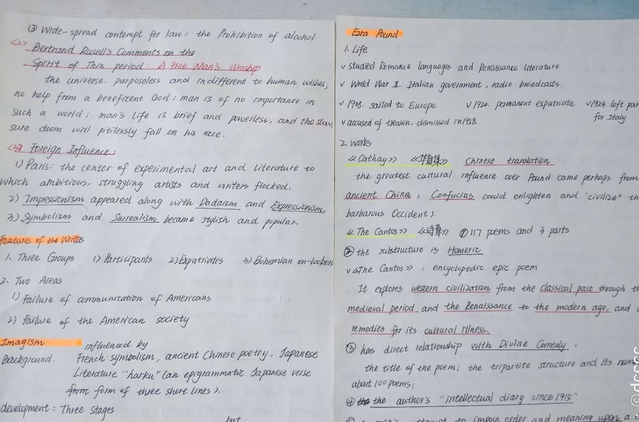 ③ Wide-spread contempt for law: the Prohibition of alcohol
Bertrand Rusell's Comments on the
Spirit of This period: A Free Man's Worship
the universe. purposeless and indifferent to human wishes;
no help from a beneficent God; man is of no importance in
such a world; man's life is brief and powerless, and the slow,
sure doom will pitilessly fall on his race.
Foreign Influence:
1) Paris: the center of experimental art and literature to
which ambitious, struggling artists and writers flocked.
2) Impressionism appeared along with Dadaism and Expressionism
3) Symbolism and Surrealism became stylish and popular
Features of the Writers
1. Three Groups 1) Participants 2) Expatriates 3) Bohemian on-lookers
2. Two Areas
1) Failure of communication of Americans
2) Failure of the American society
Imagism influenced by
Background. French symbolism, ancient Chinese poetry, Japanese
Literature "haiku" (an epigrammatic Japanese verse
from form of three short lines).
development: Three Stages
but
Ezra Pound
1. Life
v studied Romance languages and Renaissance literature
v World War II. Italian government, radio broadcasts.
v 1908. sailed to Europe v 1920. permanent expatriate v 1924 left
for Italy
v accused of treason. dismissed in 1958.
2. works
<<Cathay>> Chinese translation
the greatest cultural influence over Pound came perhaps from
ancient China; Confucius could enlighten and "civilize" the
barbarous Occident).
<<The Cantos>> <<诗章>> ① 117 poems and 3 parts
② the substructure is Homeric
v <The Cantos>>: encyclopedic epic poem
It explores western civilization from the classical past through the
medieval period and the Renaissance to the modern age, and
remedies for its cultural illness.
③ has direct relationship with Divine Comedy:
the title of the poem, the tripartite structure and its
about 100 poems;
④ the author's "intellectual diary since 1915"
thought to impose order and meaning upon a